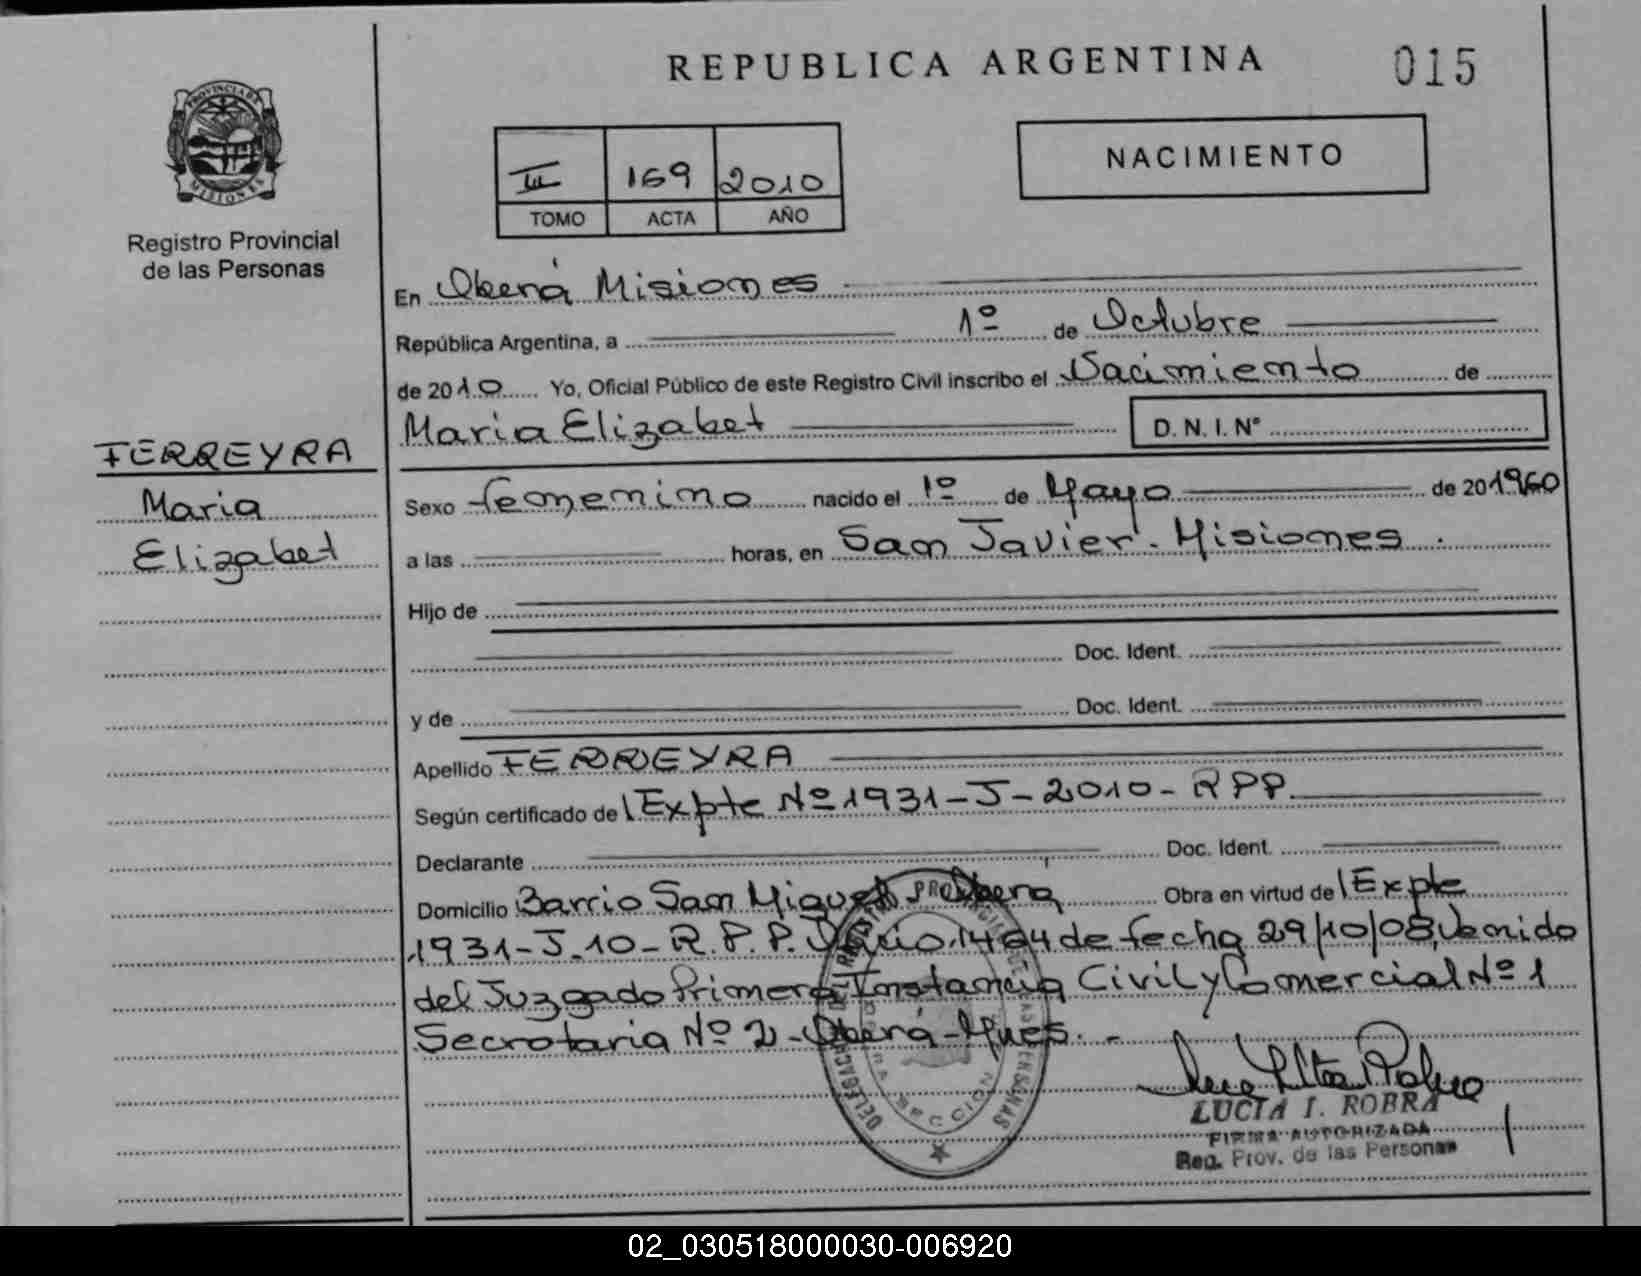 REPUBLICA ARGENTINA
015
PROVINCIA DE
MISIONES
Registro Provincial
de las Personas
III 169 2010
TOMO ACTA AÑO
NACIMIENTO
En Oberá Misiones
República Argentina, a 1º de Octubre
de 2010 Yo, Oficial Público de este Registro Civil inscribo el Nacimiento de
Maria Elizabet D. N. I. Nº
FERREYRA
Maria
Elizabet
Sexo femenino nacido el 1º de Mayo de 201960
a las horas, en San Javier. Misiones.
Hijo de
Doc. Ident.
y de Doc. Ident.
Apellido FERREYRA
Según certificado de Expte Nº 1931-J-2010-RPP.
Declarante Doc. Ident.
Domicilio Barrio San Miguel Oberá Obra en virtud de Expte
1931-J.10-R.P.P. 1464 de fecha 29/10/08, Venido
del Juzgado Primera Instancia Civil y Comercial Nº 1
Secretaria Nº 2-Oberá-Mnes.-
LUCIA I. ROBRA
FIRMA AUTORIZADA
Reg. Prov. de las Personas
02_030518000030-006920